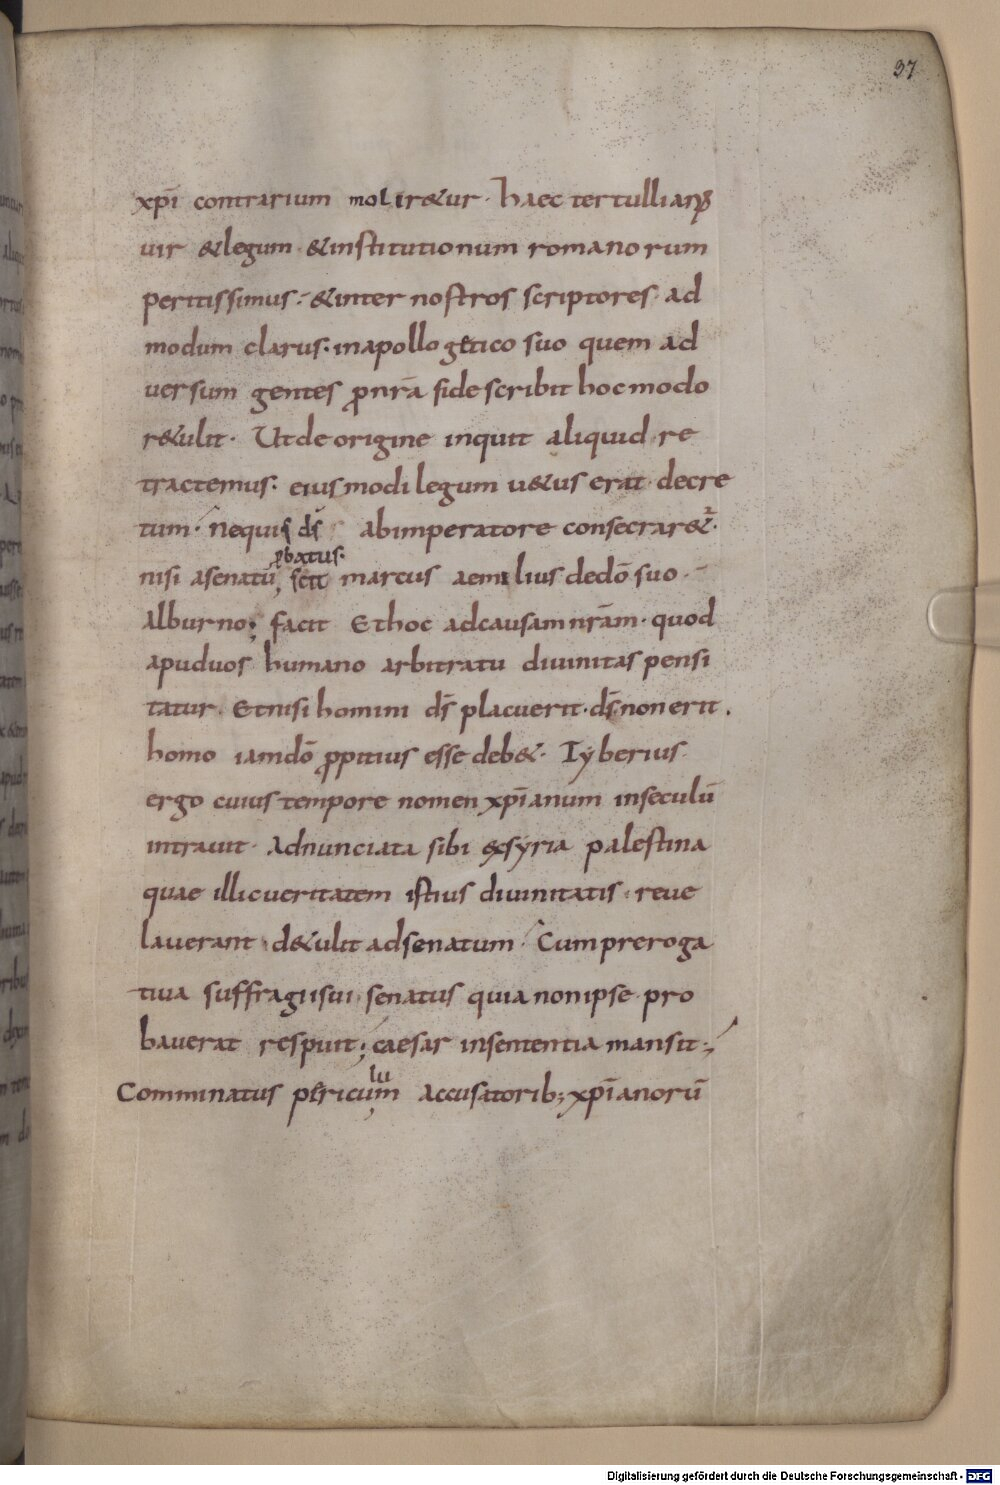 37
xp̄i contrarium molir&ur · haec tertullianus
uir &legum &institutionum romanorum
peritissimus · &inter nostros scriptores · ad
modum clarus · inapollogetico suo quem ad
uersum gentes ꝓnr̄a fide scribit hocmodo
r&ulit · Utdeorigine inquit aliquid re
tractemus · eiusmodi legum u&us erat decre
tum · Nequis ds̄ abimperatore consecrar& ·
ꝓbatus ·
nisi asenatū; scit marcus aemilius dedō suo ·
Alburno; facit Ethoc adcausam nr̄am · quod
apuduos humano arbitratu diuinitas pensi
tatur · Etnisi homini ds̄ placuerit · ds̄ non erit .
homo iamdō ꝓpitius esse deb& · Tyberius
ergo cuius tempore nomen xp̄ianum inseculū
intrauit · Adnunciata sibi &xsyria palestina
quae illic ueritatem istius diuinitatis · reue
lauerant · d&ulit adsenatum · Cum preroga
tiua suffragii sui · senatus quia non ipse pro
bauerat respuit; caesar insententia mansit ;
lu
Comminatus pericum accusatorib; xp̄ianorū
Digitalisierung gefördert durch die Deutsche Forschungsgemeinschaft - DFG